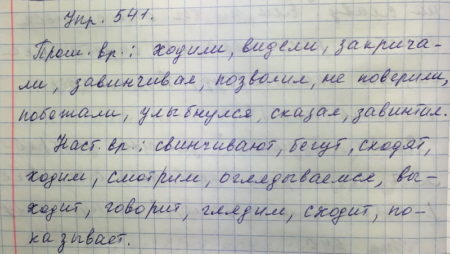 Упр. 541.
Прош. вр.: ходили, видели, закрича-
ли, завинчивал, позволил, не поверили,
побежали, улыбнулся, сказал, завинтил.
Наст. вр.: свинчивают, бегут, сходят,
ходим, смотрим, оглядываемся, вы-
ходит, говорит, глядим, сходит, по-
казывает.